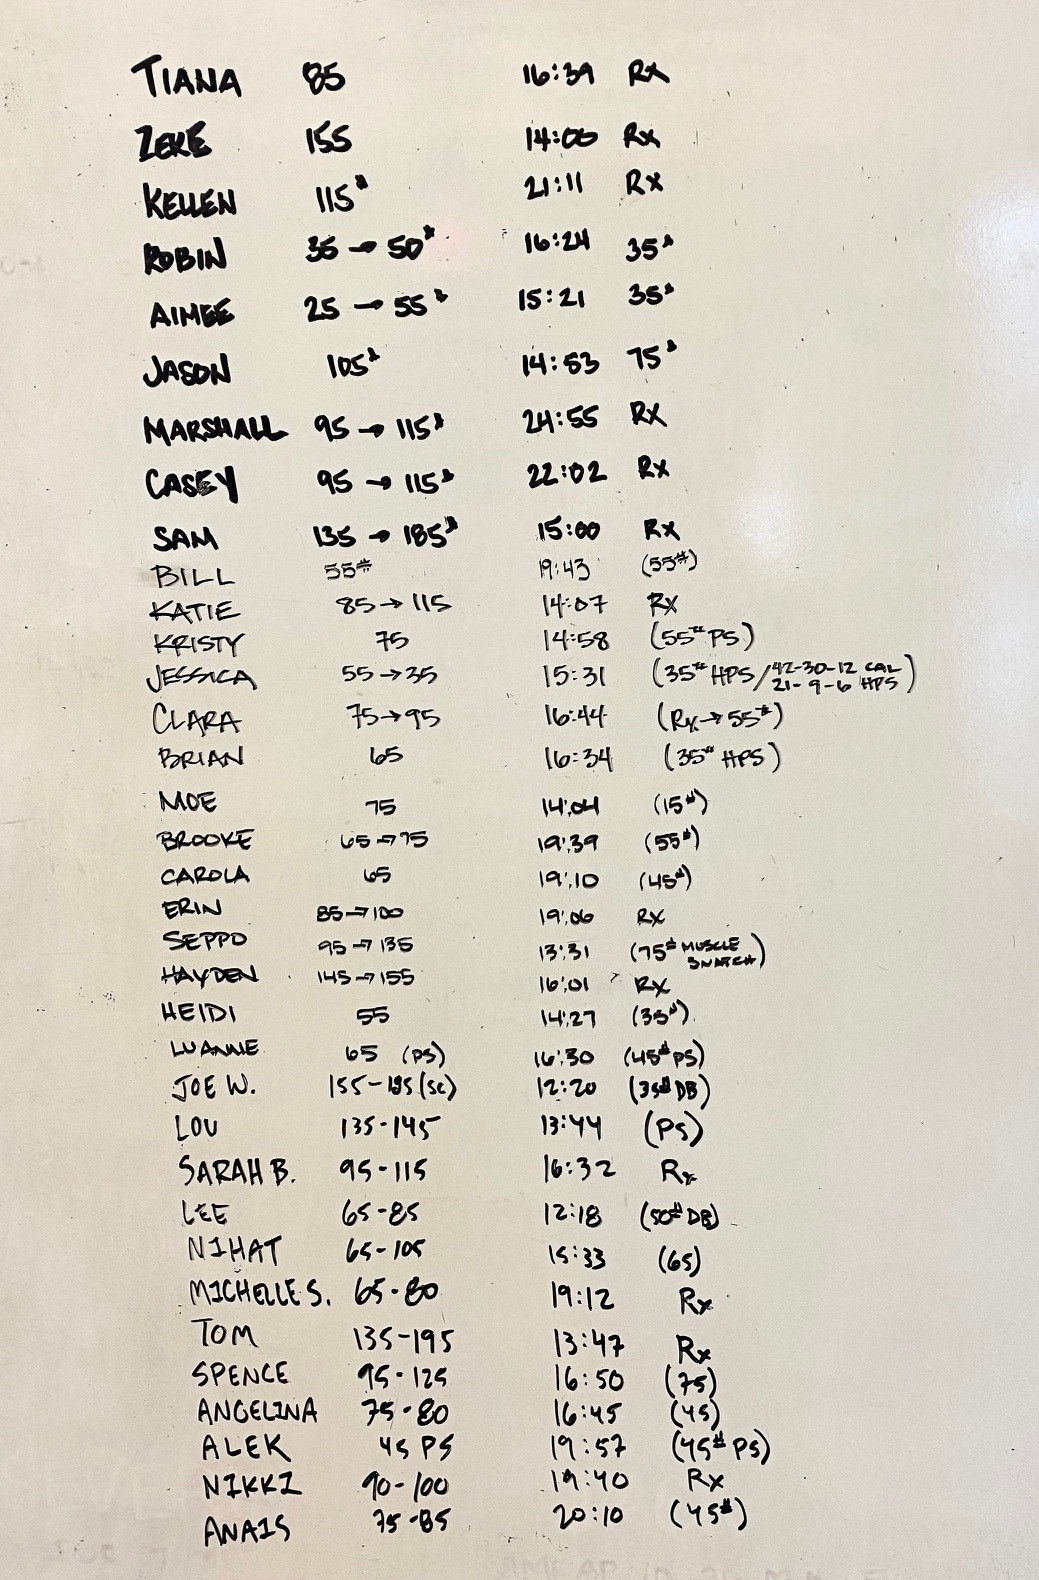 TIANA 85 16:39 Rx
ZEKE 155 14:00 Rx
KELLEN 115# 21:11 Rx
ROBIN 35 → 50# 16:24 35#
AIMEE 25 → 55# 15:21 35#
JASON 105# 14:53 75#
MARSHALL 95 → 115# 24:55 Rx
CASEY 95 → 115# 22:02 Rx
SAM 135 → 185# 15:00 Rx
BILL 55# 19:43 (55#)
KATIE 85 → 115 14:07 Rx
KRISTY 75 14:58 (55# PS)
JESSICA 55 → 35 15:31 (35# HPS/42-30-12 CAL
21-9-6 HPS)
CLARA 75 → 95 16:44 (Rx → 55#)
BRIAN 65 16:34 (35# HPS)
MOE 75 14:04 (15#)
BROOKE 65 → 75 19:39 (55#)
CAROLA 65 19:10 (45#)
ERIN 85 → 100 19:06 Rx
SEPPO 95 → 135 13:31 (75# MUSCLE
SNATCH)
HAYDEN 145 → 155 16:01 Rx
HEIDI 55 14:27 (35#)
LUANNE 65 (PS) 16:30 (45# PS)
JOE W. 155-195 (SC) 12:20 (35# DB)
LOU 135-145 13:44 (PS)
SARAH B. 95-115 16:32 Rx
LEE 65-85 12:18 (50# DB)
NIHAT 65-105 15:33 (65)
MICHELLE S. 65-80 19:12 Rx
TOM 135-195 13:47 Rx
SPENCE 95-125 16:50 (75)
ANGELINA 75-80 16:45 (45)
ALEK 45 PS 19:57 (45# PS)
NIKKI 90-100 19:40 Rx
ANAIS 75-85 20:10 (45#)